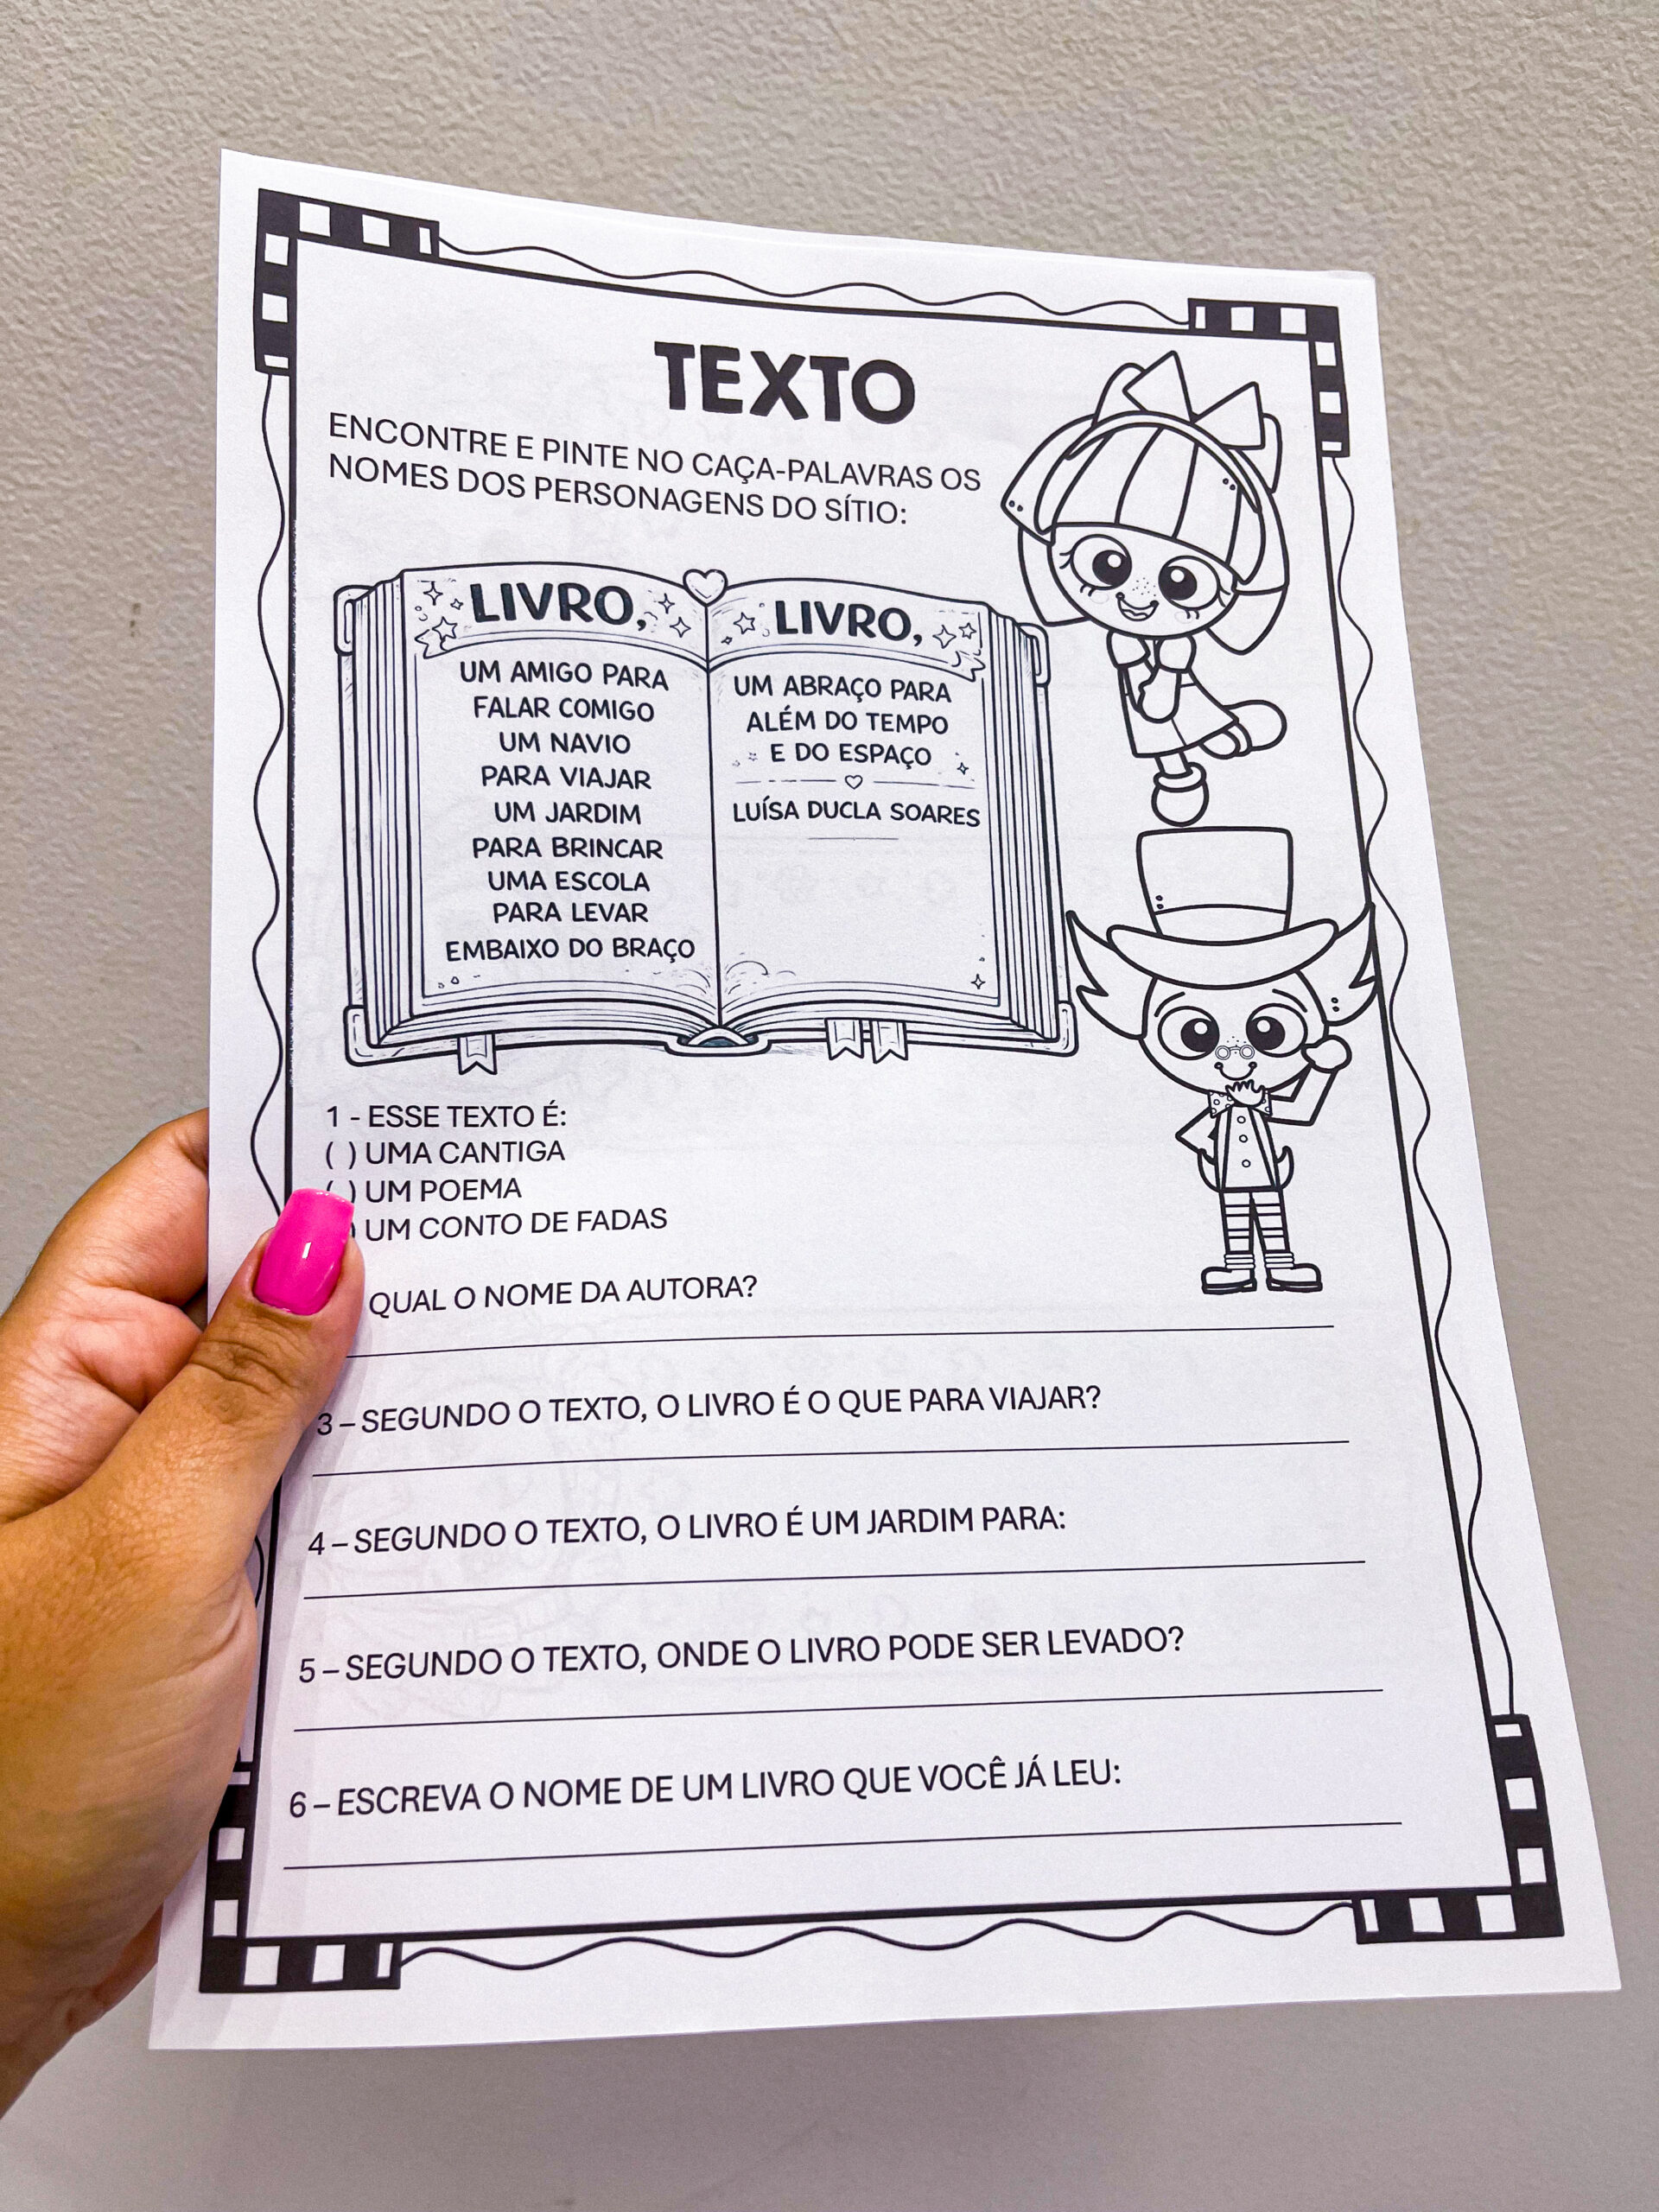 TEXTO
ENCONTRE E PINTE NO CAÇA-PALAVRAS OS
NOMES DOS PERSONAGENS DO SÍTIO:
LIVRO,
UM AMIGO PARA
FALAR COMIGO
UM NAVIO
PARA VIAJAR
UM JARDIM
PARA BRINCAR
UMA ESCOLA
PARA LEVAR
EMBAIXO DO BRAÇO
LIVRO,
UM ABRAÇO PARA
ALÉM DO TEMPO
E DO ESPAÇO
LUÍSA DUCLA SOARES
1 - ESSE TEXTO É:
( ) UMA CANTIGA
( ) UM POEMA
) UM CONTO DE FADAS
QUAL O NOME DA AUTORA?
3 – SEGUNDO O TEXTO, O LIVRO É O QUE PARA VIAJAR?
4 – SEGUNDO O TEXTO, O LIVRO É UM JARDIM PARA:
5 – SEGUNDO O TEXTO, ONDE O LIVRO PODE SER LEVADO?
6 – ESCREVA O NOME DE UM LIVRO QUE VOCÊ JÁ LEU: